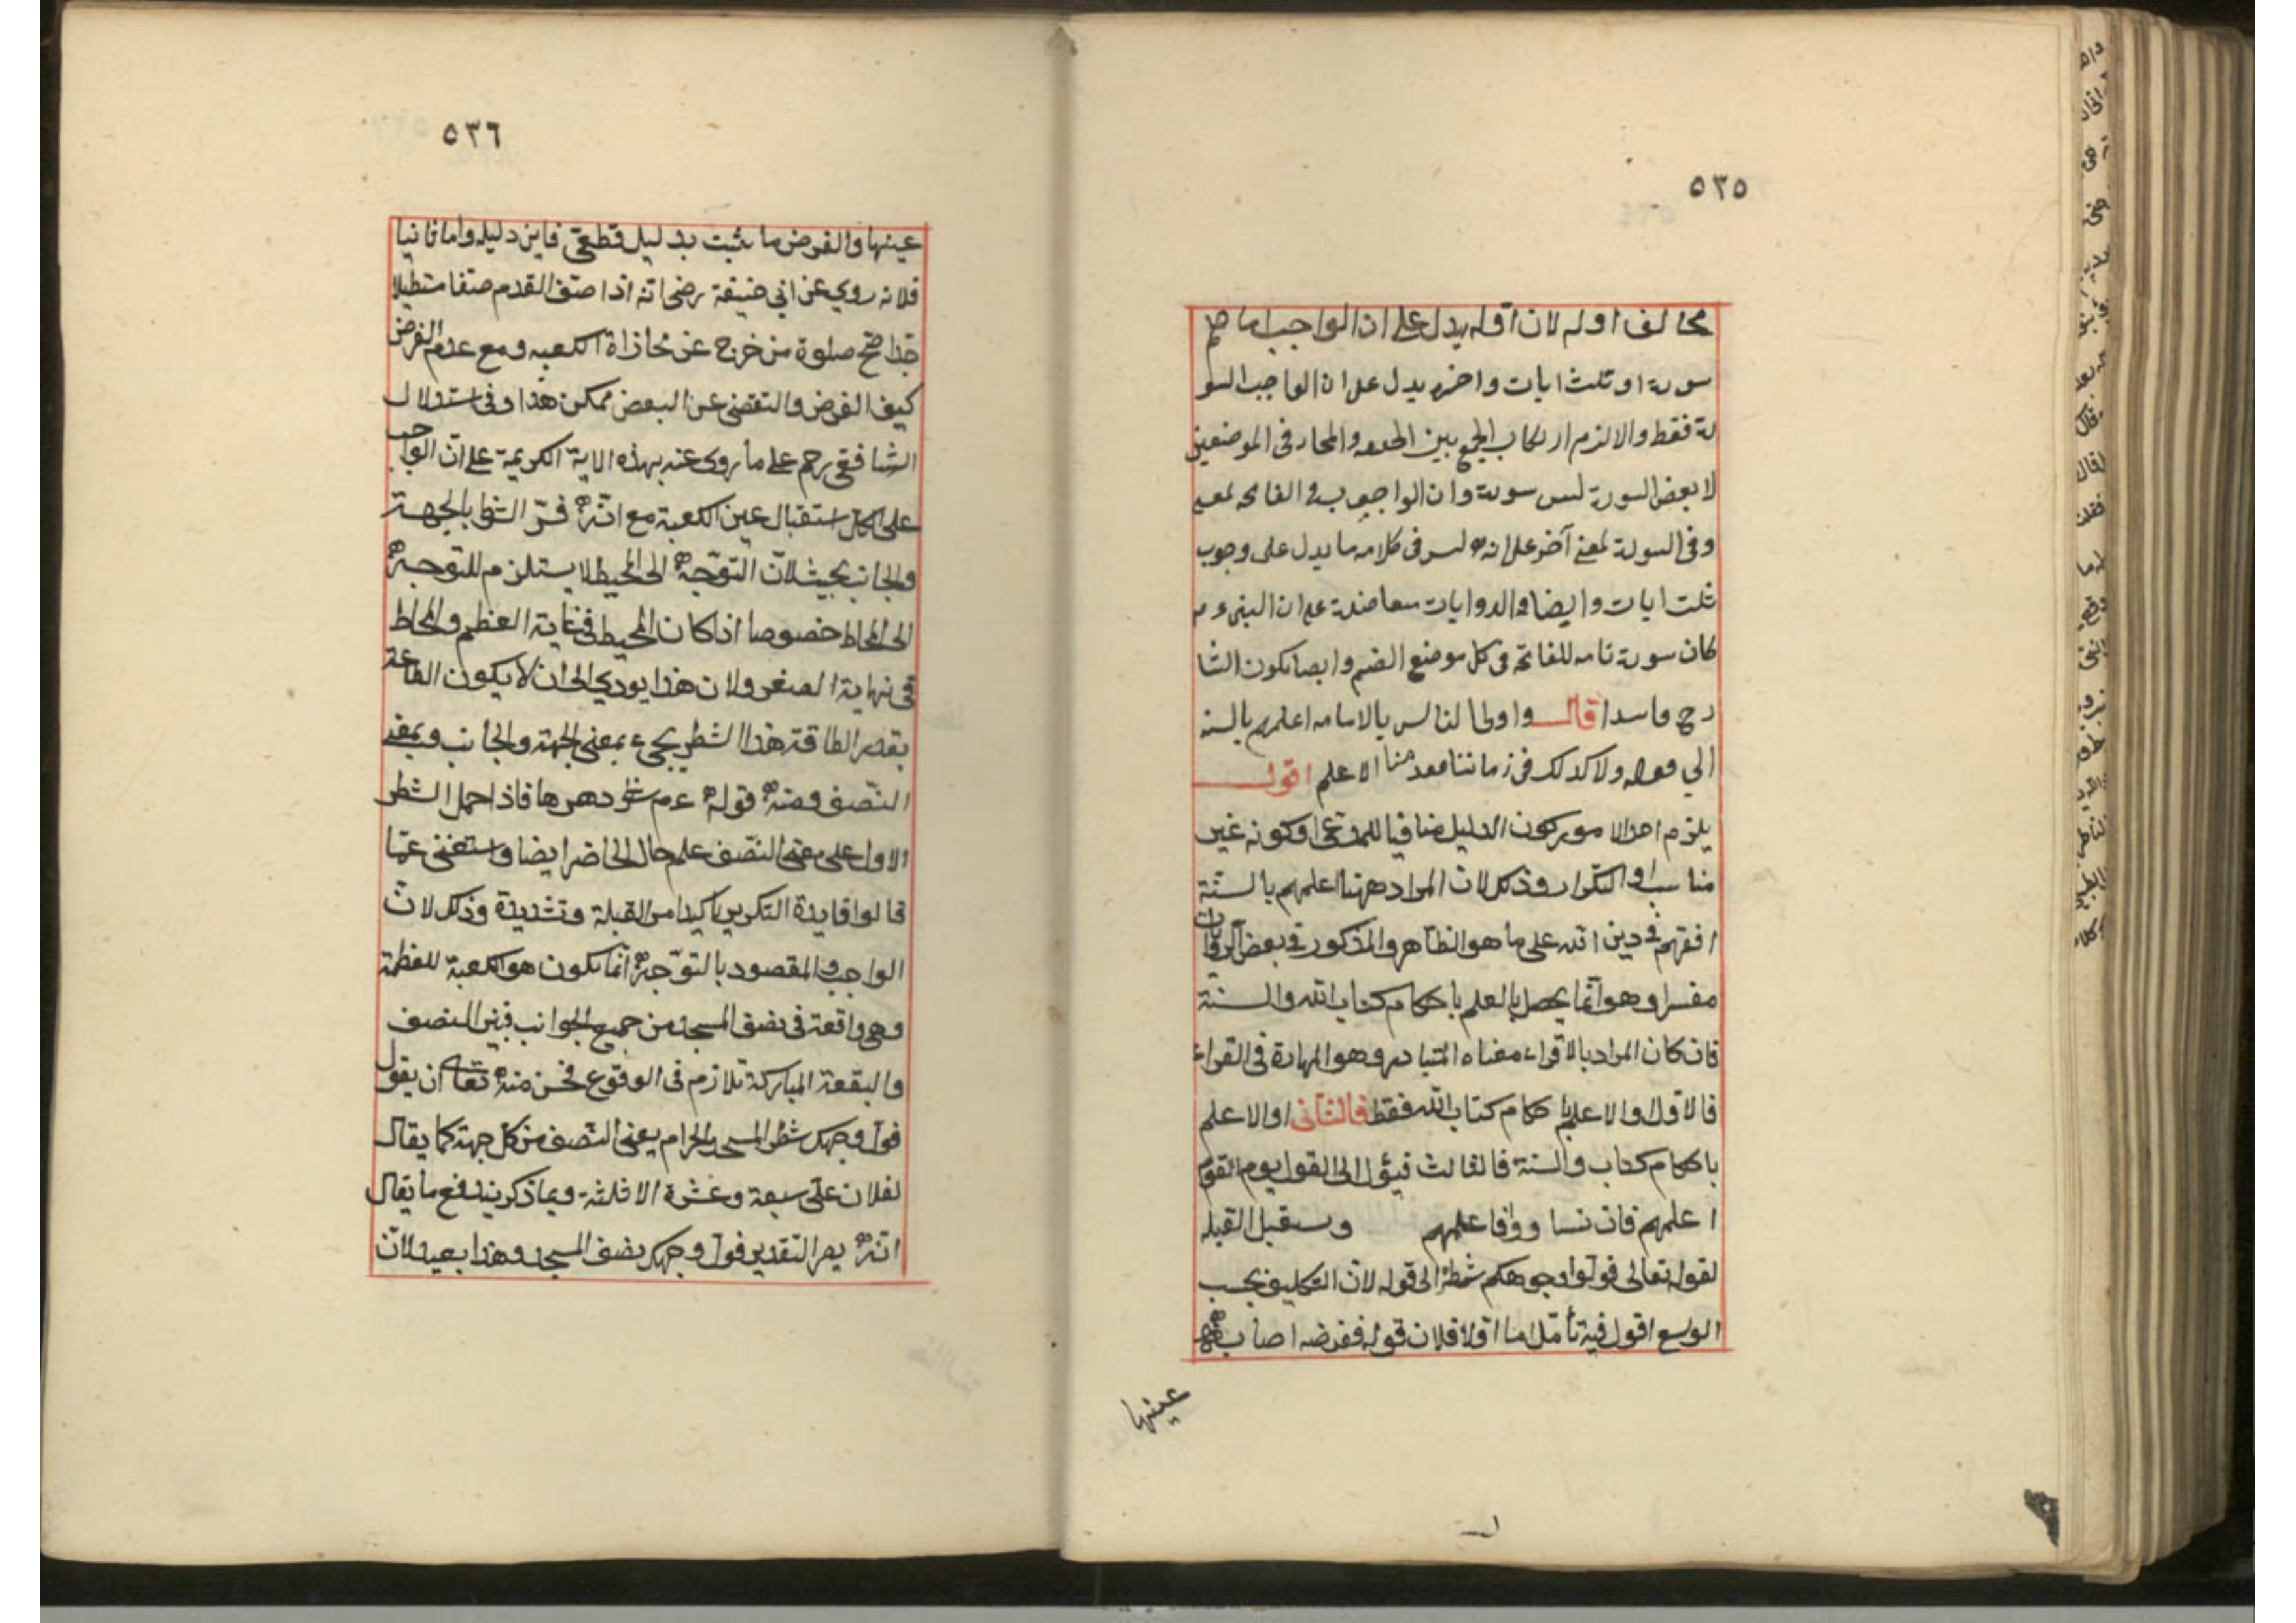 ٥٣٥
مخالف اوله لان اوله يدل على ان الواجب اما ضم
سورة او ثلث ايات واخره يدل على ان الواجب السو
رة فقط والا لزم ارتكاب الجمع بين الحقيقه والمجاز فى الموضعين
لا بعض السورة ليس سورة وان الواجب فى الفاتحه لمعنى
وفى السورة لمعنى آخر على انه ليس فى كلامه ما يدل على وجوب
ثلث ايات وايضا والروايات متعاضدة على ان النبى ء م
كان سورة تامه للفاتحة فى كل موضع الضم وايضا يكون الشا
رح فاسدا قال واولى الناس بالامامه اعلمهم بالسنه
الي قوله ولا كذلك فى زماننا فقدمنا الاعلم اقول
يلزم احد الامور كون الدليل منافيا للمدعى او كونه غير
مناسب او التكرار وذلك لان المراد ههنا اعلمهم بالسنة
افقههم فى دين الله على ما هو الظاهر والمذكور فى بعض الروايات
مفسرا وهو انما يحصل بالعلم باحكام كتاب الله والسنة
فان كان المراد بالاقراء معناه المتبادر وهو المهارة فى القراء
فالاول والاعلم باحكام كتاب الله فقط فالثانى او الاعلم
باحكام كتاب والسنة فالثالث فيؤل الى القول يوم القوم
اعلمهم فان تساووا فاعلمهم ويستقبل القبله
لقوله تعالى فولوا وجوهكم شطره الى قوله لان التكليف بحسب
الوسع اقول فيه تأمل اما اولا فلان قوله ففرضه اصابة
عينها
٥٣٦
عينها والفرض ما يثبت بدليل قطعى فاين دليله واما ثانيا
فلانه روي عن ابي حنيفة رضى انه اذا صف القدم صفا مستطيلا
جدا صح صلوة من خرج عن محاذاة الكعبه ومع عدم الفرض
كيف الفرض والتقضى عن البعض ممكن هذا وفى استدلال
الشافعى رحم على ما روى عنه بهذه الاية الكريمة على ان الواجب
على الكل استقبال عين الكعبة مع انه فسر الشطر بالجهة
والجانب بحيث لان التوجه الى المحيط لا يستلزم للتوجه
الى المحاط خصوصا اذا كان المحيط فى غاية العظم والمحاط
فى نهاية الصغر ولان هذا يودي الى ان لا يكون الطاعة
بقدر الطاقة هذا الشطر يجىء بمعنى الجهة والجانب وبمعنى
النصف ومنه قوله ء م شطر دهرها فاذا حمل الشطر
الاول على معنى النصف علم حال الحاضر ايضا واستغنى عما
قالوا فايدة التكرير تاكيد امر القبلة وتشديدة وذلك لان
الواجب والمقصود بالتوجه انما يكون هو الكعبة المعظمة
وهى واقعة فى نصف المسجد من جميع الجوانب فبين النصف
والبقعة المباركة تلازم فى الوقوع فحسن منه تعالى ان يقول
فول وجهك شطر المسجد الحرام يعنى النصف من كل جهة كما يقال
لفلان على سبعة وعشرة الا ثلثة وبما ذكر يندفع ما يقال
انه يصير التقدير فول وجهك نصف المسجد وهذا بعيد لان